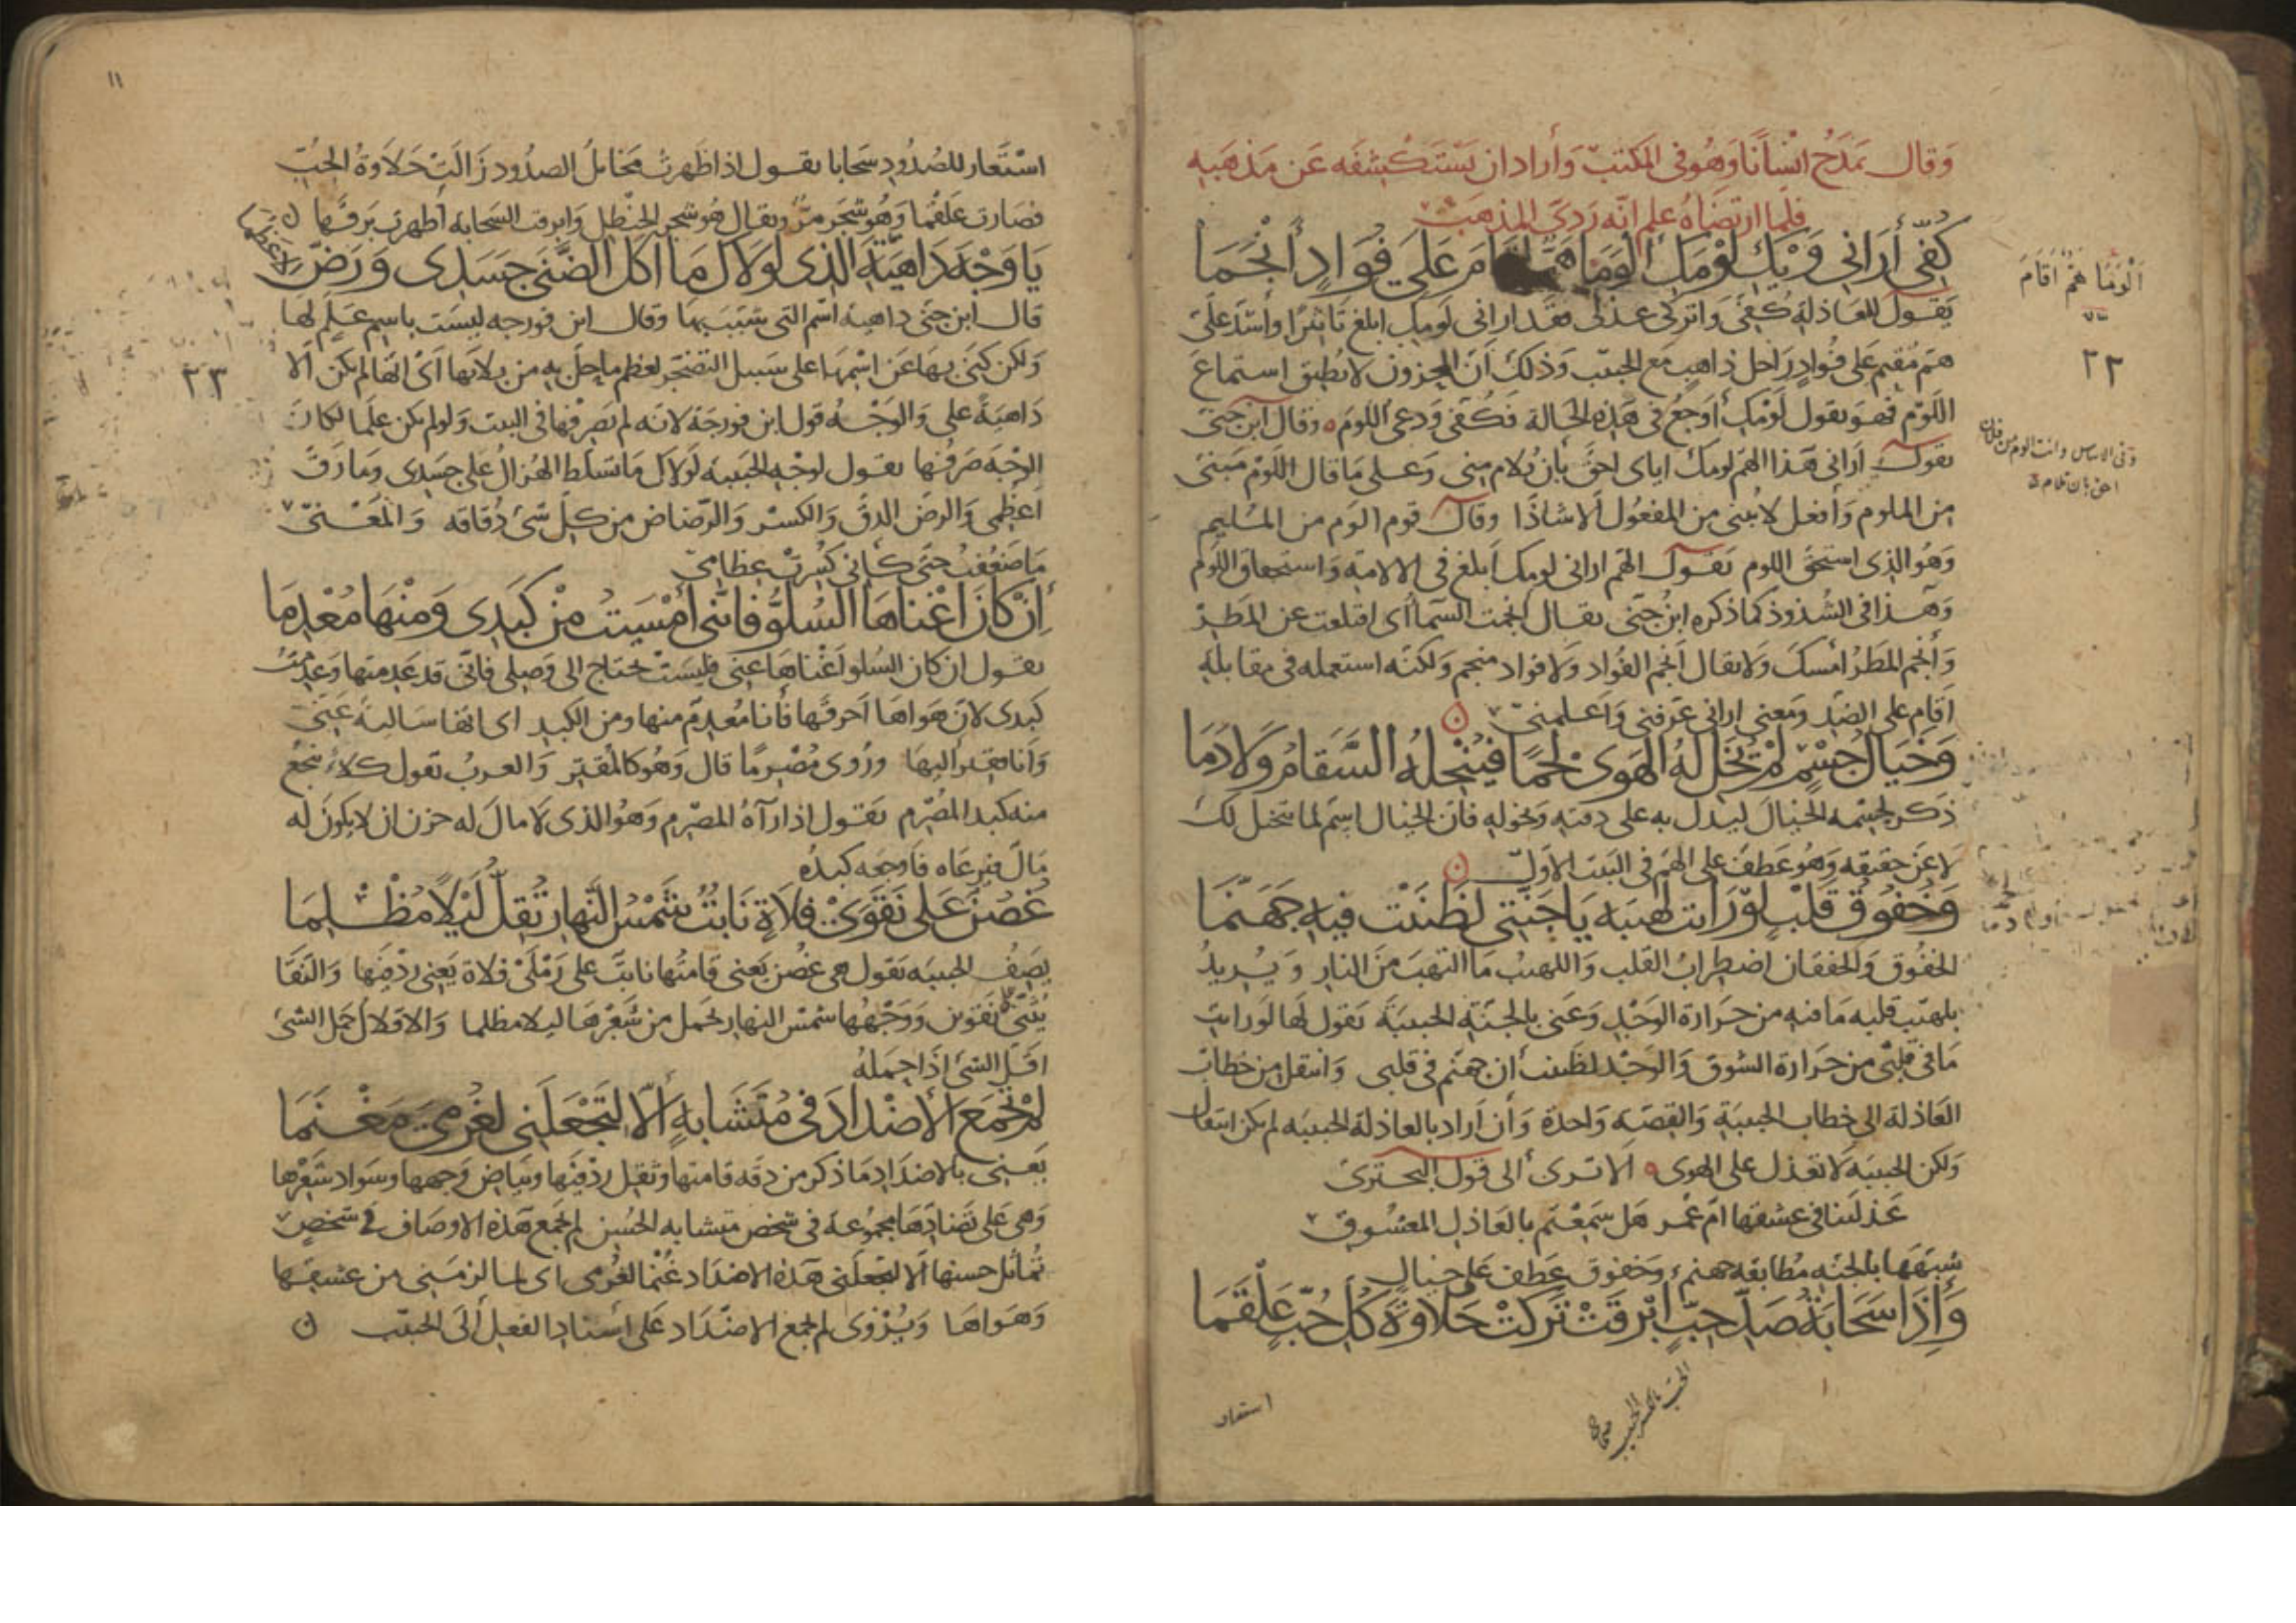 وَقال يَمدَحُ انْسَانًا وَهُو في المكتبّ وَأراد ان يَسْتَكشِفَه عَن مَذهَبه
فلما ارتضَاهُ علم انّه رَدِيّ المذهَب
كُفّي أَرَاني وَيْكِ لَوْمَكِ أَلْوَمَا هَمٌّ أقَامَ عَلَى فُؤادٍ أَنْجَمَا
يَقول للعَاذلة كُفّي وَاتركي عذلي فقد اراني لومك ابلغ تاثيرا وأشد علىّ
همّ مُقيم عَلى فُوادٍ رَاحل ذاهبٍ مَع الحبيب وَذلك أنّ المحزون لا يُطيق استماعَ
اللّوم فهو يقول لَوْمك أوجعُ في هَذه الحَالة فكُفّي وَدعي اللومَ ه وقال ابن جنى
يقول اَراني هَذا الهمّ لومك اياى احقّ بان يُلام منى وَعلى مَا قال اللّوم مَبنىّ
مِن الملوم وَأفعل لا يُبنى من المفعُول اِلا شاذًا وقال قوم الوم من المُليم
وَهُو الذى استحقّ اللوم يَقول الهمّ ارانى لومك اَبلغ في الالامة وَاستحقاق اللّوم
وَهَذا في الشُذوذ كما ذكره ابنُ جنّى يقال انجمت السَمآ أى اقلعت عن المَطر
وَأنجم المَطرُ أمسكَ وَلا يقال اَنجم الفُواد وَلا فواد منجم وَلكنّه استعمله في مقابلة
اَقام على الضدّ وَمَعنى ارانى عرّفنى وَاَعلمنىّ ن
وَخَيَالُ جِسْمٍ لَمْ يُخَلّ لَهُ الهَوَى لَحْمًا فَيُنْحِلُهُ السَّقَامُ وَلَا دَمَا
ذكر لجسمه الخيالَ ليدل به على دقته وَنحوله فانّ الخيال اسم لما يتخيل لك
لا عَن حقيقه وَهُو عَطف على الهمّ في البيت الاوّل ن
وَخُفُوقُ قَلْبٍ لَوْ رَأيتِ لهيبَه يَا جَنّتى لَظَنَنْتِ فيه جَهَنّمَا
الخفُوق وَالخفقان اضطرابُ القلب وَاللهيبُ مَا التهبَ مِنَ النار وَيُريدُ
بلهيب قلبه مَا فيه من حَرَارة الوَجْدِ وَعَنى بالجنّة الحبيبَةَ يَقول لَها لَو رايتِ
مَا في قلبى من حرارة الشوق وَالوَجْد لظننت أن جهنّم في قلبى وَانتقل من خطاب
العَاذلة الى خطاب الحبيبَةِ وَالقصّة وَاحدة وَأن أَراد بالعاذلة الحبيبَه لم يكن انتقال
وَلكن الحبيبَه لا تعذل على الهوى ه الا ترى الى قول البحترى
عَذلَتنا في عشقها اُمّ عُمرٍ هَل سَمعْتم بالعَاذل المعشوق
شبّهَها بالجنّه مُطابقة جهنم وَخفوق عَطف عَلى خيال
وَإذَا سَحَابَةُ صَدِّ حِبٍّ ابْرقَتْ تَرَكَتْ حَلَاوَةَ كُلِّ حُبٍّ عَلْقَمَا
الحبّ بالكسر الحبيب صحاح
استعار
اَلْوَمَا هَمٌّ اَقَامَ
٢٢
وفي الاساس وانت الوم من فلان
احق بان تلام
١١
اسْتَعَار للصُدُود سَحَابا يقول اذا ظهَرتْ مَخائلُ الصدُود زَالَتْ حَلَاوَةُ الحبّ
فصَارت عَلقمًا وَهُو شجَر مرّ ويقال هُو شجر الحنظل وَابرقت السَحابه أظهرت بَرقَهَا ن
يَا وَجْهَ دَاهِيَةَ الّذي لَوْلَاكَ مَا اَكَلَ الضّنَى جَسَدِى وَرَضَّ الاَعْظُمَا
قال ابن جنّى داهية اسم التى شَبّبَ بها وَقال ابن فورجه ليسَت باسم علَم لَها
وَلكن كنَى بهَا عَن اسْمهَا على سَبيل التضجّر لعظم ما حلّ به من بلائها اَىْ انها لم يكن اِلا
٢٣
دَاهيَةً على وَالوَجْهُ قول ابن فورجَة لانه لم يَصرِفها في البيت وَلو لم يكن علمًا لكانَ
الوَجْه صَرفُها يقول لوجْه الحبيبَه لَولاكَ مَا تسَلّط الهُزالُ على جسَدى وَمَا دَقّ
اعظمى وَالرضّ الدقّ وَالكسر وَالرّضاض من كلّ شئ دُقاقه وَالمَعْنىّ
مَا ضعُفتُ حتّى كأني كُسرتْ عظامى
اِنْ كَانَ اَغْنَاهَا السُلُوُّ فَإنّني أَمْسَيتُ مِنْ كَبَدِى وَمِنْهَا مُعْدِمَا
يقول ان كان السُلو اَغْناهَا عنى فليسَتْ تحتاج الى وَصلى فانّى قد عَدِمتها وَعدمتُ
كبدى لان هَواهَا اَحرقَها فأنا مُعدِمٌ منها ومن الكبد اى انها سَالية عَنىّ
وَانا مفتقر اليهَا ورُوى مُصْرِمًا قال وَهُو كالمُقتِر وَالعربُ تقول كلاءٌ تيجَعُ
منه كبد المُصرِم يَقول اذا رَآهُ المصرم وَهُو الذى لَا مالَ له حزن ان لا يكونَ له
مالَ فيرعَاه فاوجعه كبدُه
غُصُنٌ عَلَى نَقَوَىْ فَلَاةٍ نَابتٌ شَمْسُ النَّهارِ تُقِلُّ لَيْلًا مُظْلِمَا
يَصِفُ الحبيبَه يَقول هى غصُن يَعنى قامتُها نابتٌ على رَمْلَىْ فلاة يَعنى رِدْفَيها وَالنقَا
يُثنّى نَقَوَين وَوَجْههَا شمسُ النهار تحمل من شَعْرهَا ليلا مظلما وَالاقلال حمْل الشئ
اقلّ الشئ اذا حملهُ
لَمْ تُجْمَعِ الأضْدَادُ فى مُتَشَابِهٍ اَلّا لِتَجْعَلَنِى لِغُرْمِىَ مَغْنَمَا
يَعنى بالاضدَاد مَا ذكر من دقة قامتها وَثقل ردْفَيها وَبَياض وَجهها وسَواد شَعْرها
وَهى على تَضَادّهَا مجمُوعَة في شخص متشابه الحُسن لم تجمع هَذه الاوصَاف في شخصٍ
تُماثل حسنها اَلا لتجعلَنى هَذه الاضدَاد غُنْمًا لغُرمى اى لما لزمَنى من عشقها
وَهَواهَا وَيُرْوى لم يَجمع الاضدَاد عَلى أسناد الفعل اَلَى الحبيب ن